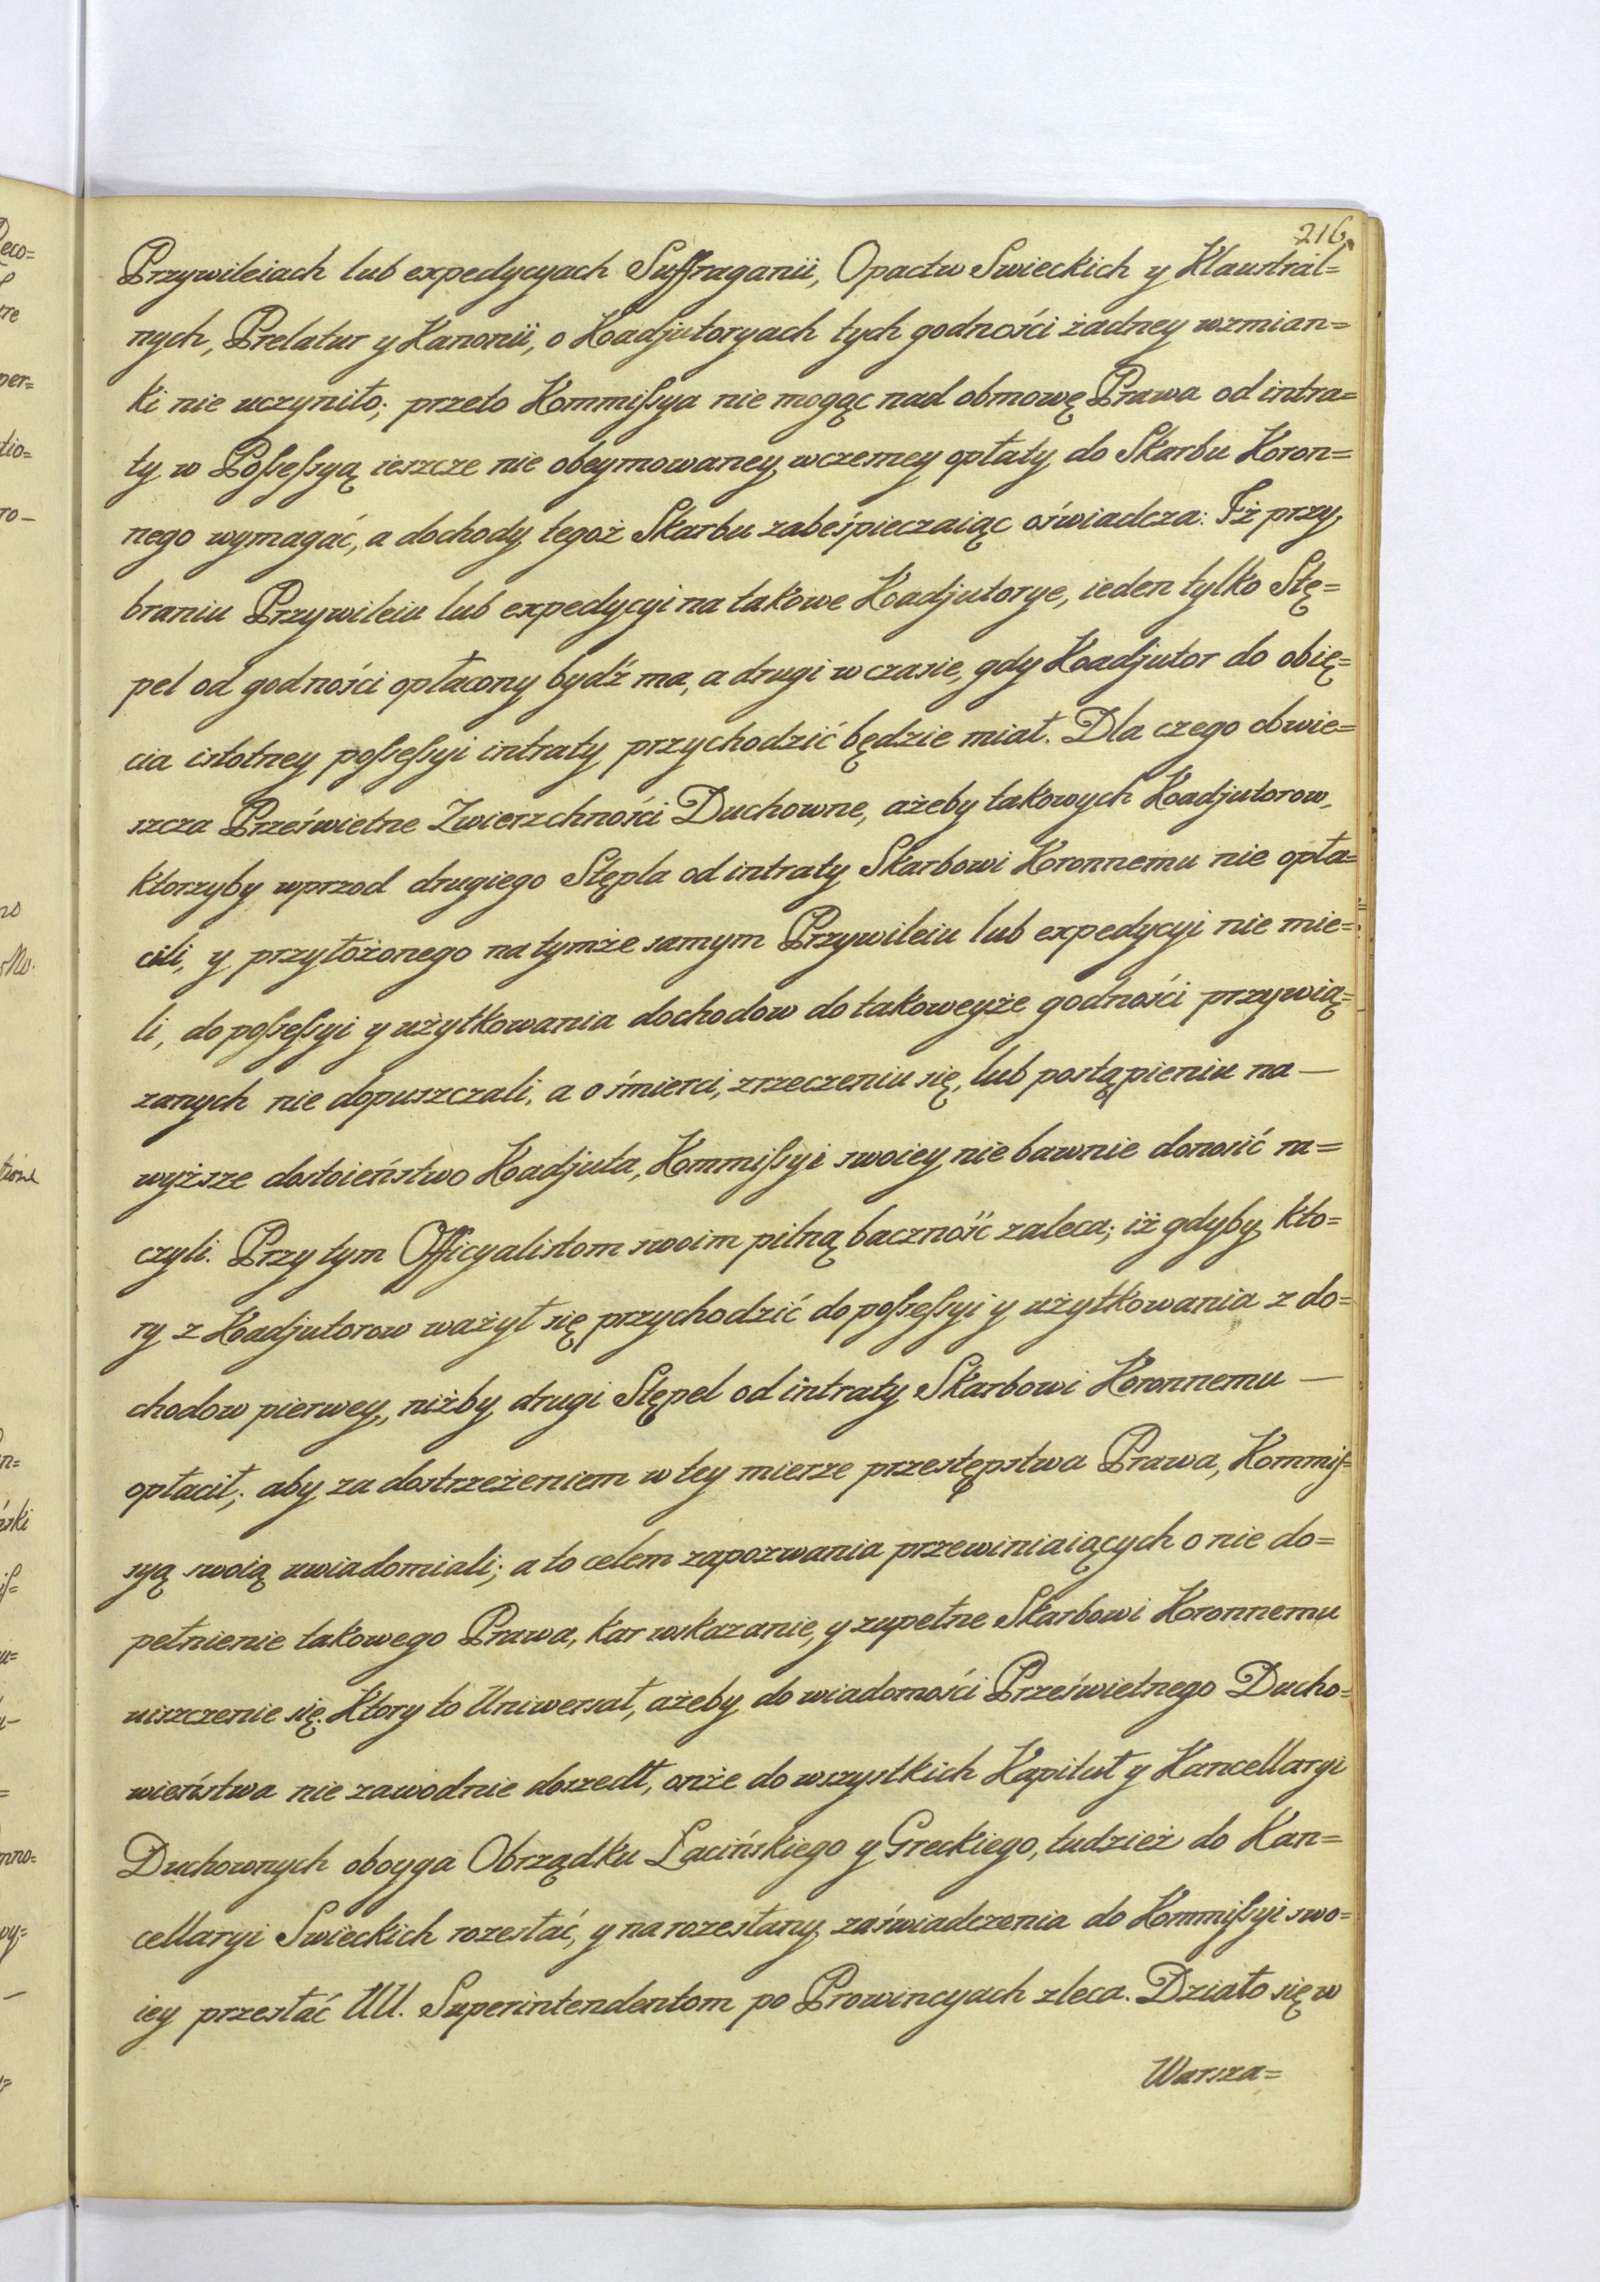 216
Przywileiach lub expedycyach Suffraganii, Opactw Swieckich y Klaustral=
nych, Prelatur y Kanonii, o Koadjutoryach tych godności żadney wzmian=
ki nie uczyniło; przeto Kommiſsya nie mogąc nad obmowę Prawa od intra=
ty w Poſseſsyą ieszcze nie obeymowaney, wczesney opłaty do Skarbu Koron=
nego wymagać, a dochody tegoż Skarbu zabeśpieczaiąc oświadcza: Iż przy
braniu Przywileiu lub expedycyi na takowe Koadjutorye, ieden tylko Stę=
pel od godności opłacony bydź ma, a drugi w czasie, gdy Koadjutor do obię=
cia istotney poſseſsyi intraty przychodzić będzie miał. Dla czego obwie=
szcza Prześwietne Zwierzchności Duchowne, ażeby takowych Koadjutorow,
ktorzyby wprzod drugiego Stępla od intraty Skarbowi Koronnemu nie opła=
cili, y przyłożonego na tymże samym Przywileiu lub expedycyi nie mie=
li, do poſseſsyi y użytkowania dochodow do takoweyże godności przywią=
zanych nie dopuszczali, a o śmierci, zrzeczeniu się, lub postąpieniu na —
wyższe dostoieństwo Koadjuta, Kommiſsyi swoiey nie bawnie donosić ra=
czyli. Przy tym Officyalistom swoim pilną baczność zaleca; iż gdyby kto=
ry z Koadjutorow ważył się przychodzić do poſseſsyi y użytkowania z do=
chodow pierwey, niżby drugi Stępel od intraty Skarbowi Koronnemu —
opłacił; aby za dostrzeżeniem w tey mierze przestępstwa Prawa, Kommiſ=
syą swoią uwiadomiali; a to celem zapozwania przewiniaiących o nie do=
pełnienie takowego Prawa, kar wskazanie, y zupełne Skarbowi Koronnemu
uiszczenie się. Ktory to Uniwersał, ażeby do wiadomości Prześwietnego Ducho=
wieństwa nie zawodnie doszedł, onże do wszystkich Kapituł y Kancellaryi
Duchownych oboyga Obrządku Łacińskiego y Greckiego, tudzież do Kan=
cellaryi Swieckich rozesłać, y na rozesłany, zaświadczenia do Kommiſsyi swo=
iey przesłać UU. Superintendentom po Prowincyach zleca. Działo się w
Warsza=